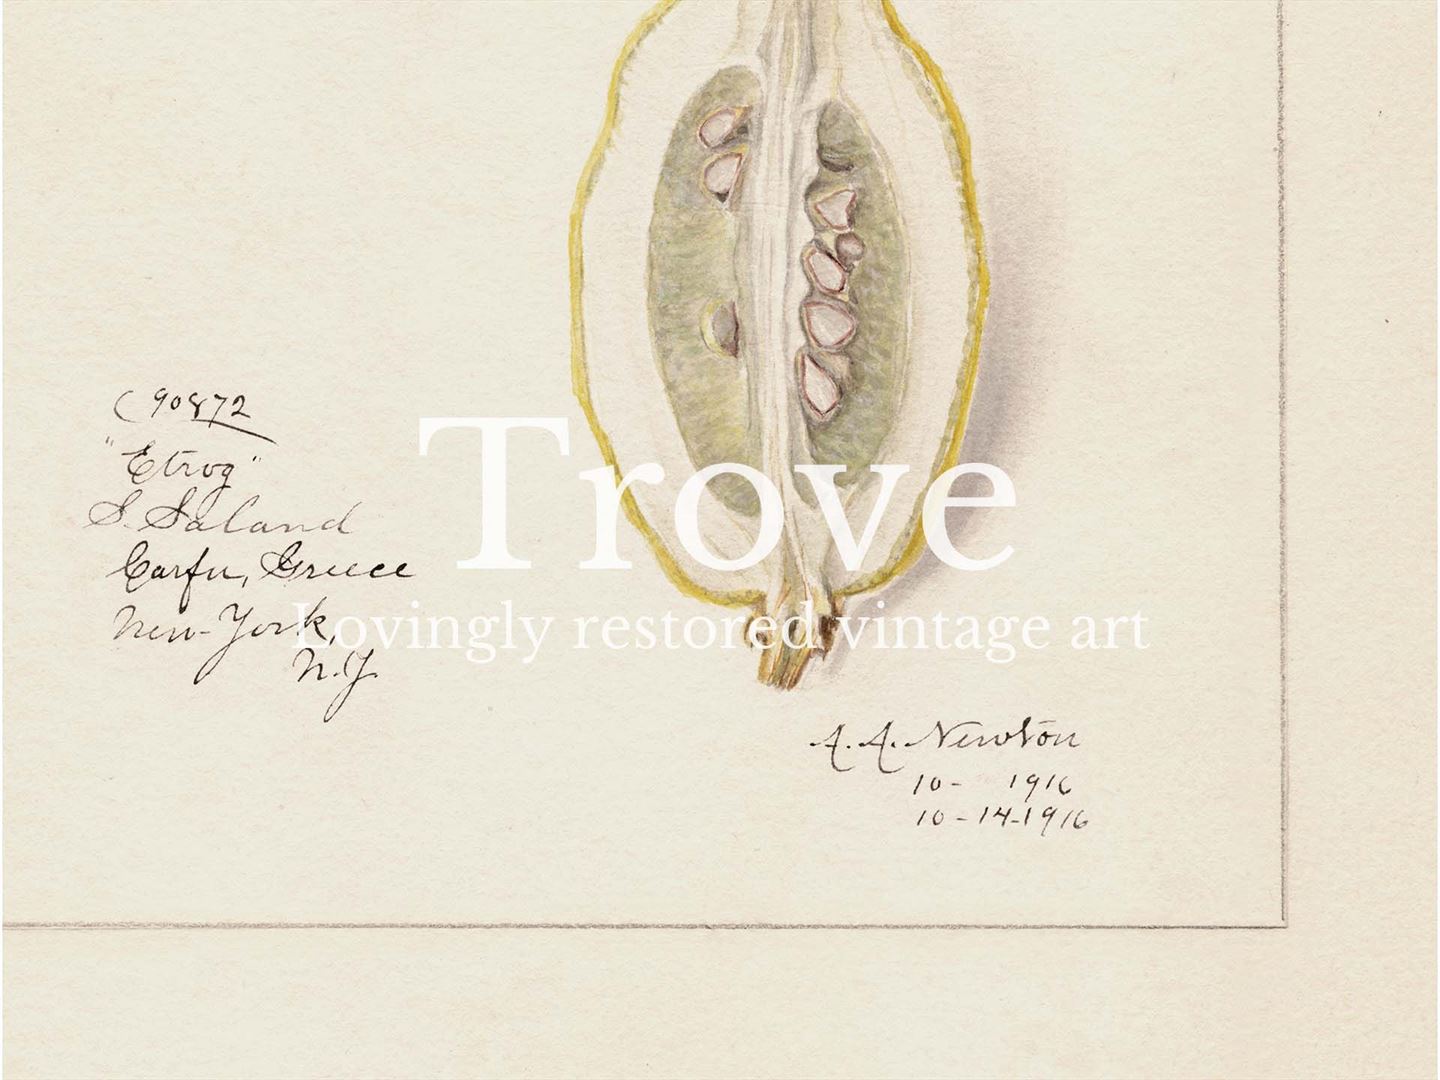 (90872
"Etrog"
S. Saland
Corfu, Greece
New-York,
N.Y.
Trove
Lovingly restored vintage art
A.A. Newton
10- 1916
10-14-1916